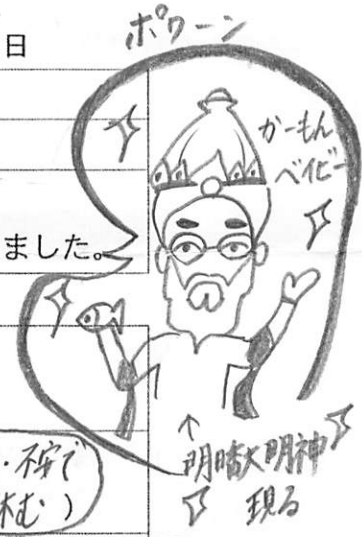 ポワーン
日
かーもん
ベイビー
ました。
↑
明晴大明神
現る
・不安で
む)